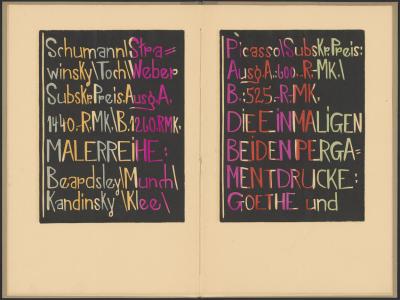 Schumann\Stra=
winsky\Toch\Weber.
Subskr.Preis:Ausg.A.
1440.-R.MK.\B.1260.R.MK.
MALERREIHE:
Beardsley\Munch\
Kandinsky\Klee\
Picasso\Subskr.Preis:
Ausg.A.:600.-R.-MK.\
B.:525.-R.-MK.
DIE EINMALIGEN
BEIDEN PERGA=
MENTDRUCKE:
GOETHE und